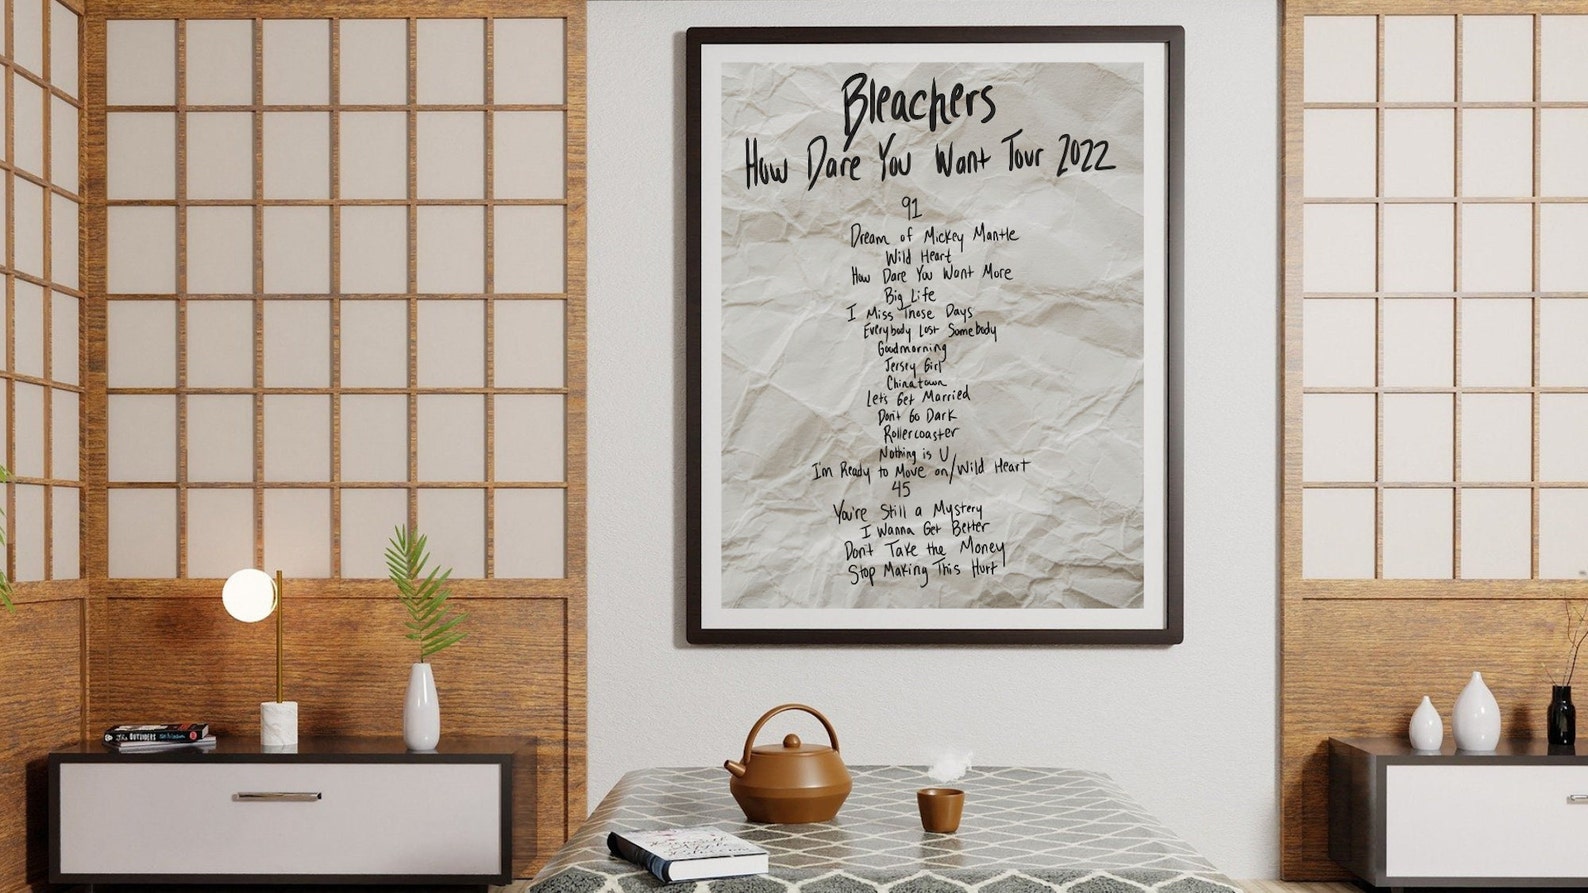 Bleachers
How Dare You Want Tour 2022
91
Dream of Mickey Mantle
Wild Heart
How Dare You Want More
Big Life
I Miss Those Days
Everybody Lost Somebody
Goodmorning
Jersey Girl
Chinatown
Lets Get Married
Don't Go Dark
Rollercoaster
Nothing is U
I'm Ready to Move on/Wild Heart
45
You're Still a Mystery
I Wanna Get Better
Don't Take the Money
Stop Making This Hurt
The OUTSIDERS